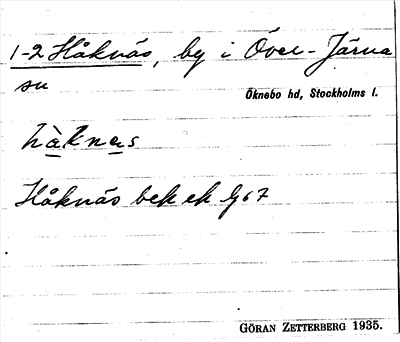 1-2 Håknäs, by i Över-Järna
sn
Öknebo hd, Stockholms l.
hàknas
Håknäs bek ek bl 67
GÖRAN ZETTERBERG 1935.